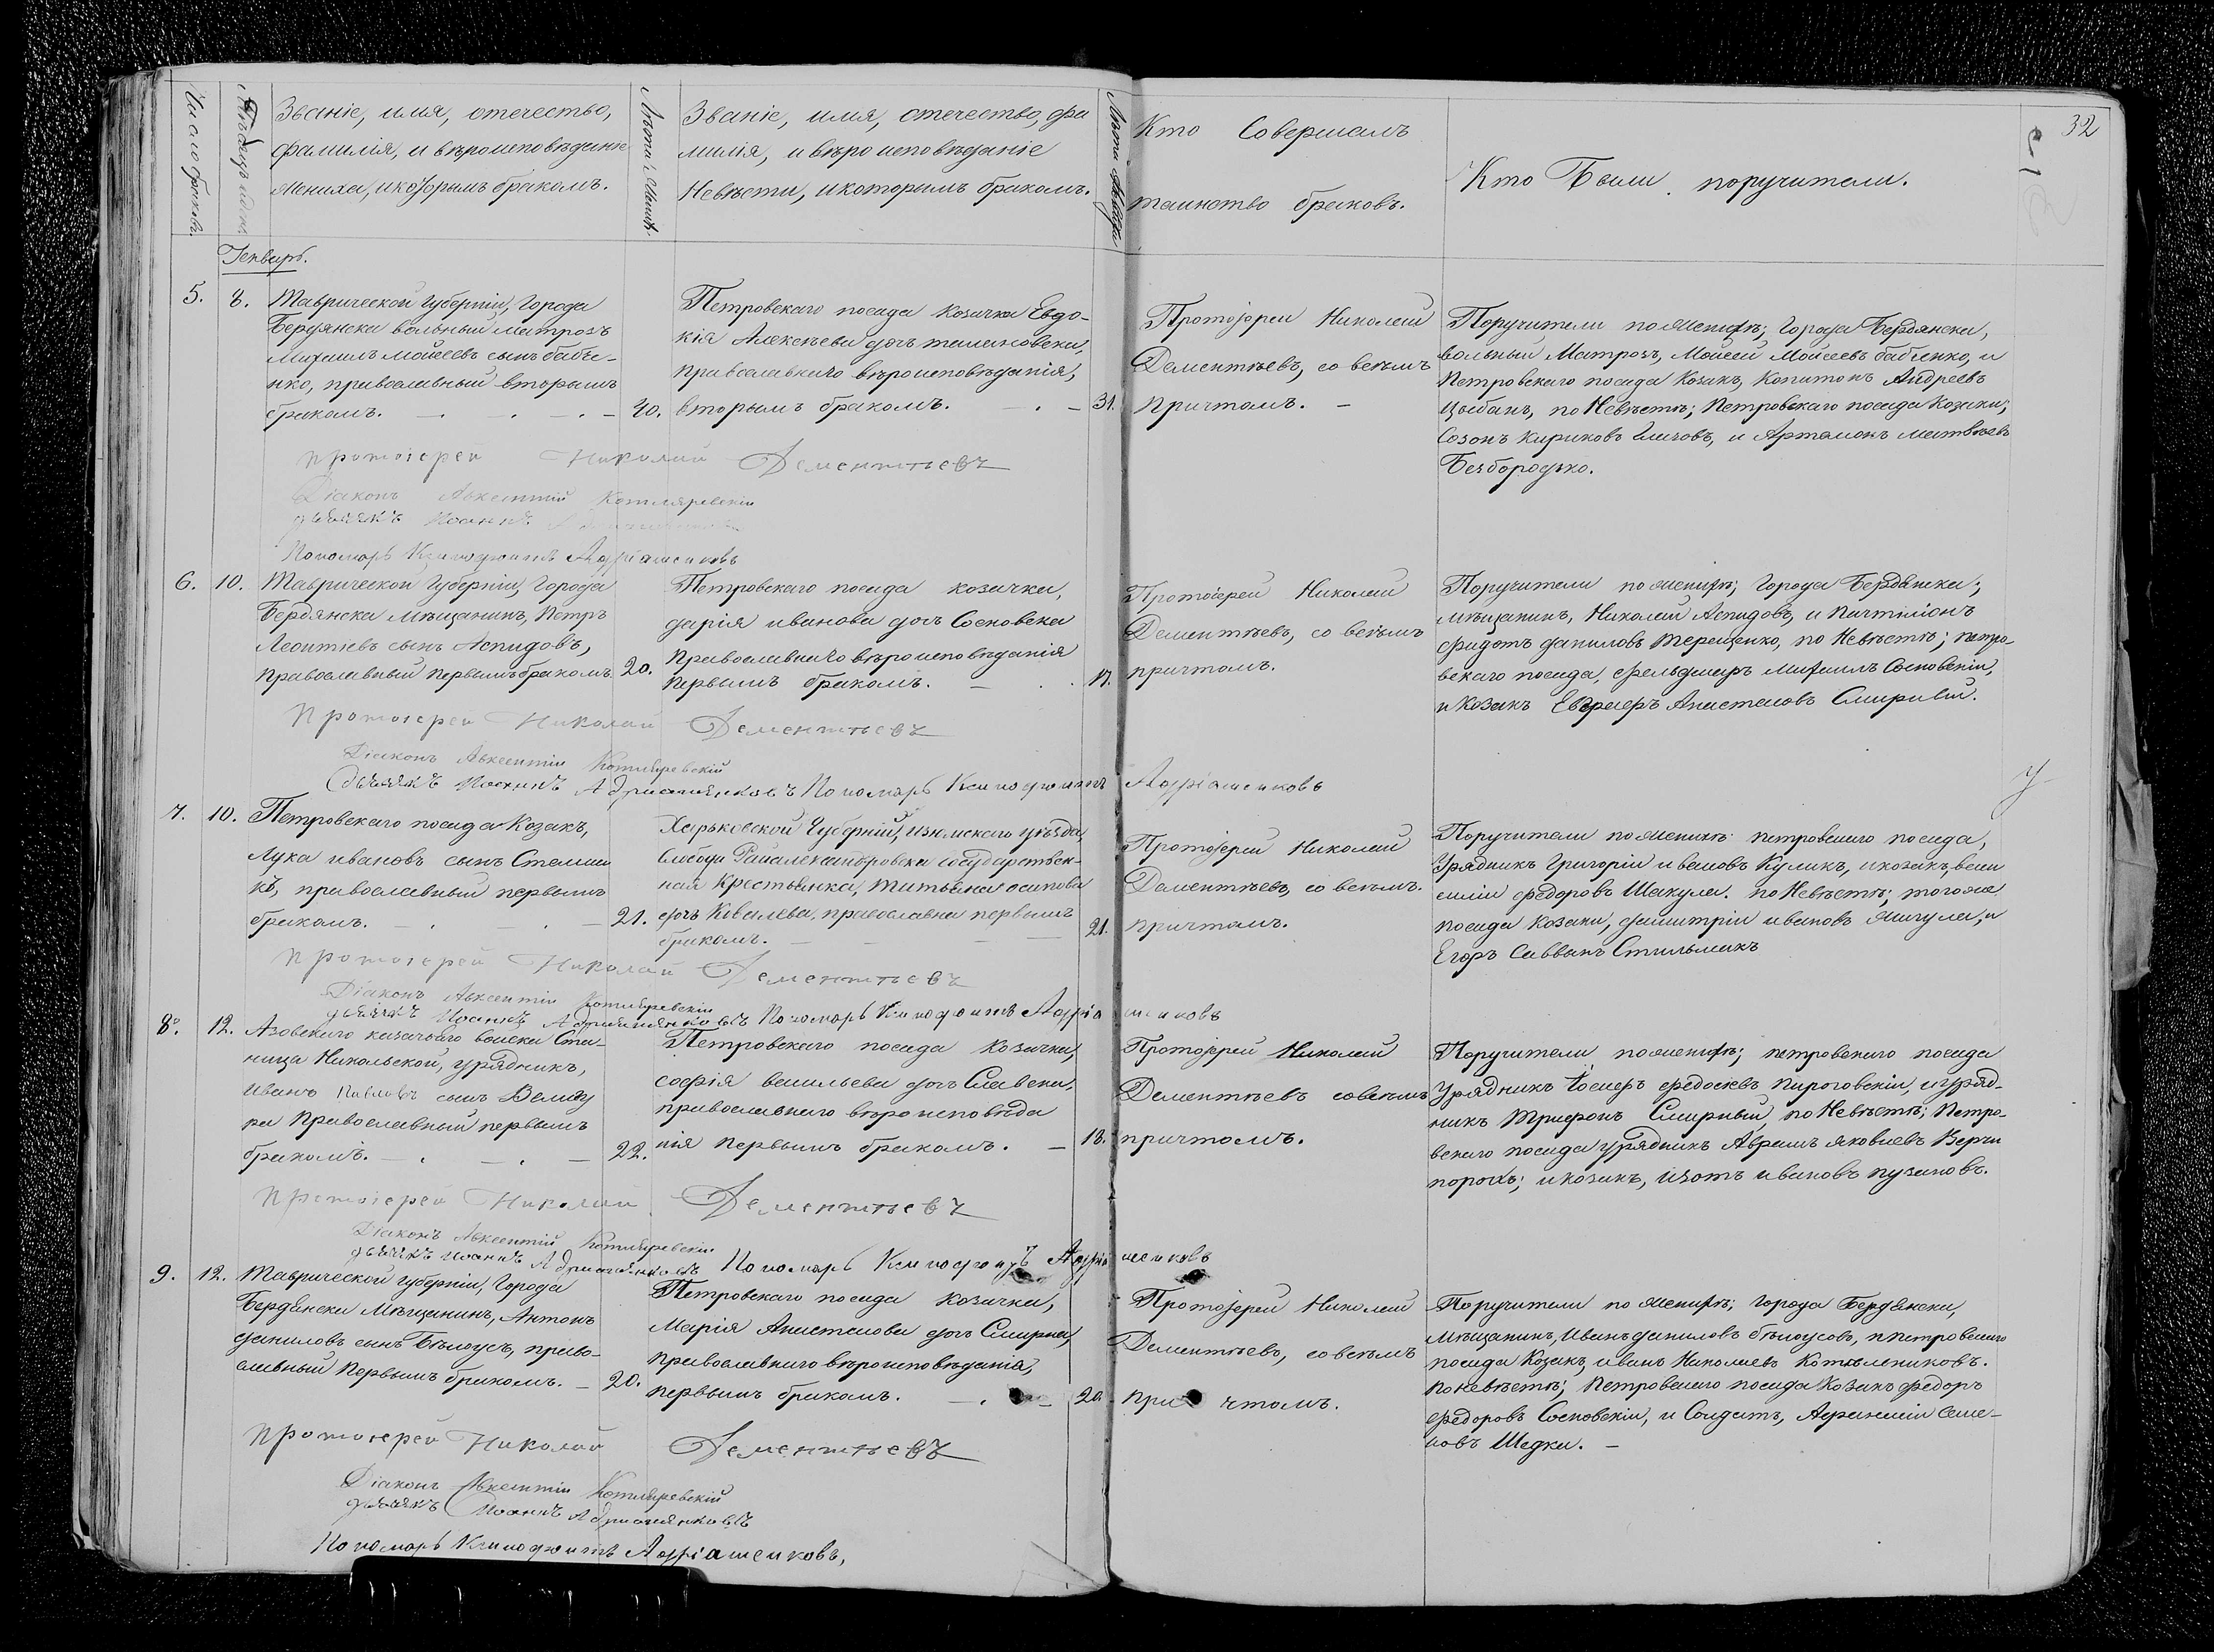 32
Число браковъ.
Мѣсяцъ и день.
Званіе, имя, отечество,
фамилія, и вѣроисповѣданіе
Жениха, и которымъ бракомъ.
Лѣта Жених.
Званіе, имя, отечество, фа
милія, и вѣроисповѣданіе
Невѣсты, и которымъ бракомъ.
Лѣта Невѣсты
Кто Совершалъ
таинство браковъ.
Кто Были поручители.
Генварь.
5. 8.
Таврической Губерніи, Города
Бердянска вольный матрозъ
Михаилъ Мойсеевъ сынъ Бабче-
нко, православный вторымъ
бракомъ. 20.
Петровскаго посада козачка Евдо-
кія Алексѣева дочь
православнаго вѣроисповѣданія,
вторымъ бракомъ. 31.
Протоіерей Николай
Дементьевъ, со всѣмъ
причтомъ.
Поручители по Женихѣ; Города Бердянска,
вольный Матрозъ, Мойсей Мойсеевъ Бабченко, и
Петровскаго посада Козакъ, Капитонъ Андреевъ
Цыбань, по Невѣстѣ; Петровскаго посада Козаки;
Созонъ Кириковъ и Артамонъ Матвѣевъ
Безбородько.
Протоіерей Николай Дементьевъ
Діаконъ Авксентій Котляревскій
дьячекъ Иоаннъ
Пономарь Ксинофонтъ Адріашенковъ
6. 10.
Таврической Губерніи, Города
Бердянска Мѣщанинъ, Петръ
Леонтіевъ сынъ Аспидовъ,
православный первымъ бракомъ. 20.
Петровскаго посада козачка,
Дарія Иванова дочь Сосновска
православнаго вѣроисповѣданія
первымъ бракомъ. 17.
Протоіерей Николай
Дементьевъ, со всѣмъ
причтомъ.
Поручители по Женихѣ; Города Бердянска;
мѣщанинъ, Николай Аспидовъ, и
Федотъ Даниловъ Терещенко, по Невѣстѣ; Петро-
вскаго посада, фельдшеръ Михаилъ Сосновскій,
и Козакъ Анастасовъ Смирный.
Протоіерей Николай Дементьевъ
Діаконъ Авксентій Котляревскій
дьячекъ Иоаннъ Адриашенковъ Пономарь Ксинофонтъ Адріашенковъ
7. 10.
Петровскаго посада Козакъ,
Лука Ивановъ сынъ Стельма
къ, православный первымъ
бракомъ. 21.
Харьковской Губерніи, Изюмскаго уѣзда,
Слободы Райалександровки государствен-
ная Крестьянка, Татьяна Осипова
дочь Ковалева, православна первымъ
бракомъ. 21.
Протоіерей Николай
Дементьевъ, со всѣмъ
причтомъ.
Поручители по Женихѣ: Петровскаго посада,
Урядникъ Григорій Ивановъ Куликъ, и козакъ, Васи
силій Федоровъ Шакула. по Невѣстѣ; того же
посада Козаки, Димитрій Ивановъ Жигула, и
Егоръ Саввинъ Стильмакъ
Протоіерей Николай Дементьевъ
Діаконъ Авксентій Котляревскій
дьячекъ Иоаннъ Адриашенковъ Пономарь Ксинофонтъ Адріашенковъ
8. 12.
Азовскаго казачьяго войска Ста-
ница Никольской, урядникъ,
Иванъ Павловъ сынъ
ра Православный первымъ
бракомъ. 22.
Петровскаго посада Козачка,
Софія Васильева дочь
православнаго вѣроисповѣда
нія первымъ бракомъ. 18.
Протоіерей Николай
Дементьевъ со всѣмъ
причтомъ.
Поручители по Женихѣ; Петровскаго посада
Урядникъ Іосифъ Федосіевъ Пироговскій, и уряд-
никъ Трифонъ Смирный, по Невѣстѣ; Петро-
вскаго посада урядникъ Аврамъ Яковлевъ Верти
порохъ; и козакъ, Изотъ Ивановъ Пузановъ.
Протоіерей Николай Дементьевъ
Діаконъ Авксентій Котляревскій
дьячекъ Иоаннъ Адриашенковъ Пономарь Ксинофонтъ Адріашенковъ
9. 12.
Таврической Губерніи, Города
Бердянска Мѣщанинъ, Антонъ
Даниловъ сынъ Бѣлоусъ, право-
славный Первымъ бракомъ. 20.
Петровскаго посада Козачка,
Марія Анастасова дочь Смирна,
православнаго вѣроисповѣданія,
первымъ бракомъ. 20.
Протоіерей Николай
Дементьевъ, со всѣмъ
причтомъ.
Поручители по Женихѣ; Города Бердянска,
мѣщанинъ, Иванъ Даниловъ Бѣлоусовъ, и Петровскаго
посада Козакъ, Иванъ Николаевъ Котельниковъ.
по Невѣстѣ; Петровскаго посада Козакъ Федоръ
Федоровъ Сосновскій, и Солдатъ, Афанасій Семе-
новъ Шедка.
Протоіерей Николай Дементьевъ
Діаконъ Авксентій Котляревскій
дьячекъ Иоаннъ Адриашенковъ
Пономарь Ксинофонтъ Адріашенковъ,